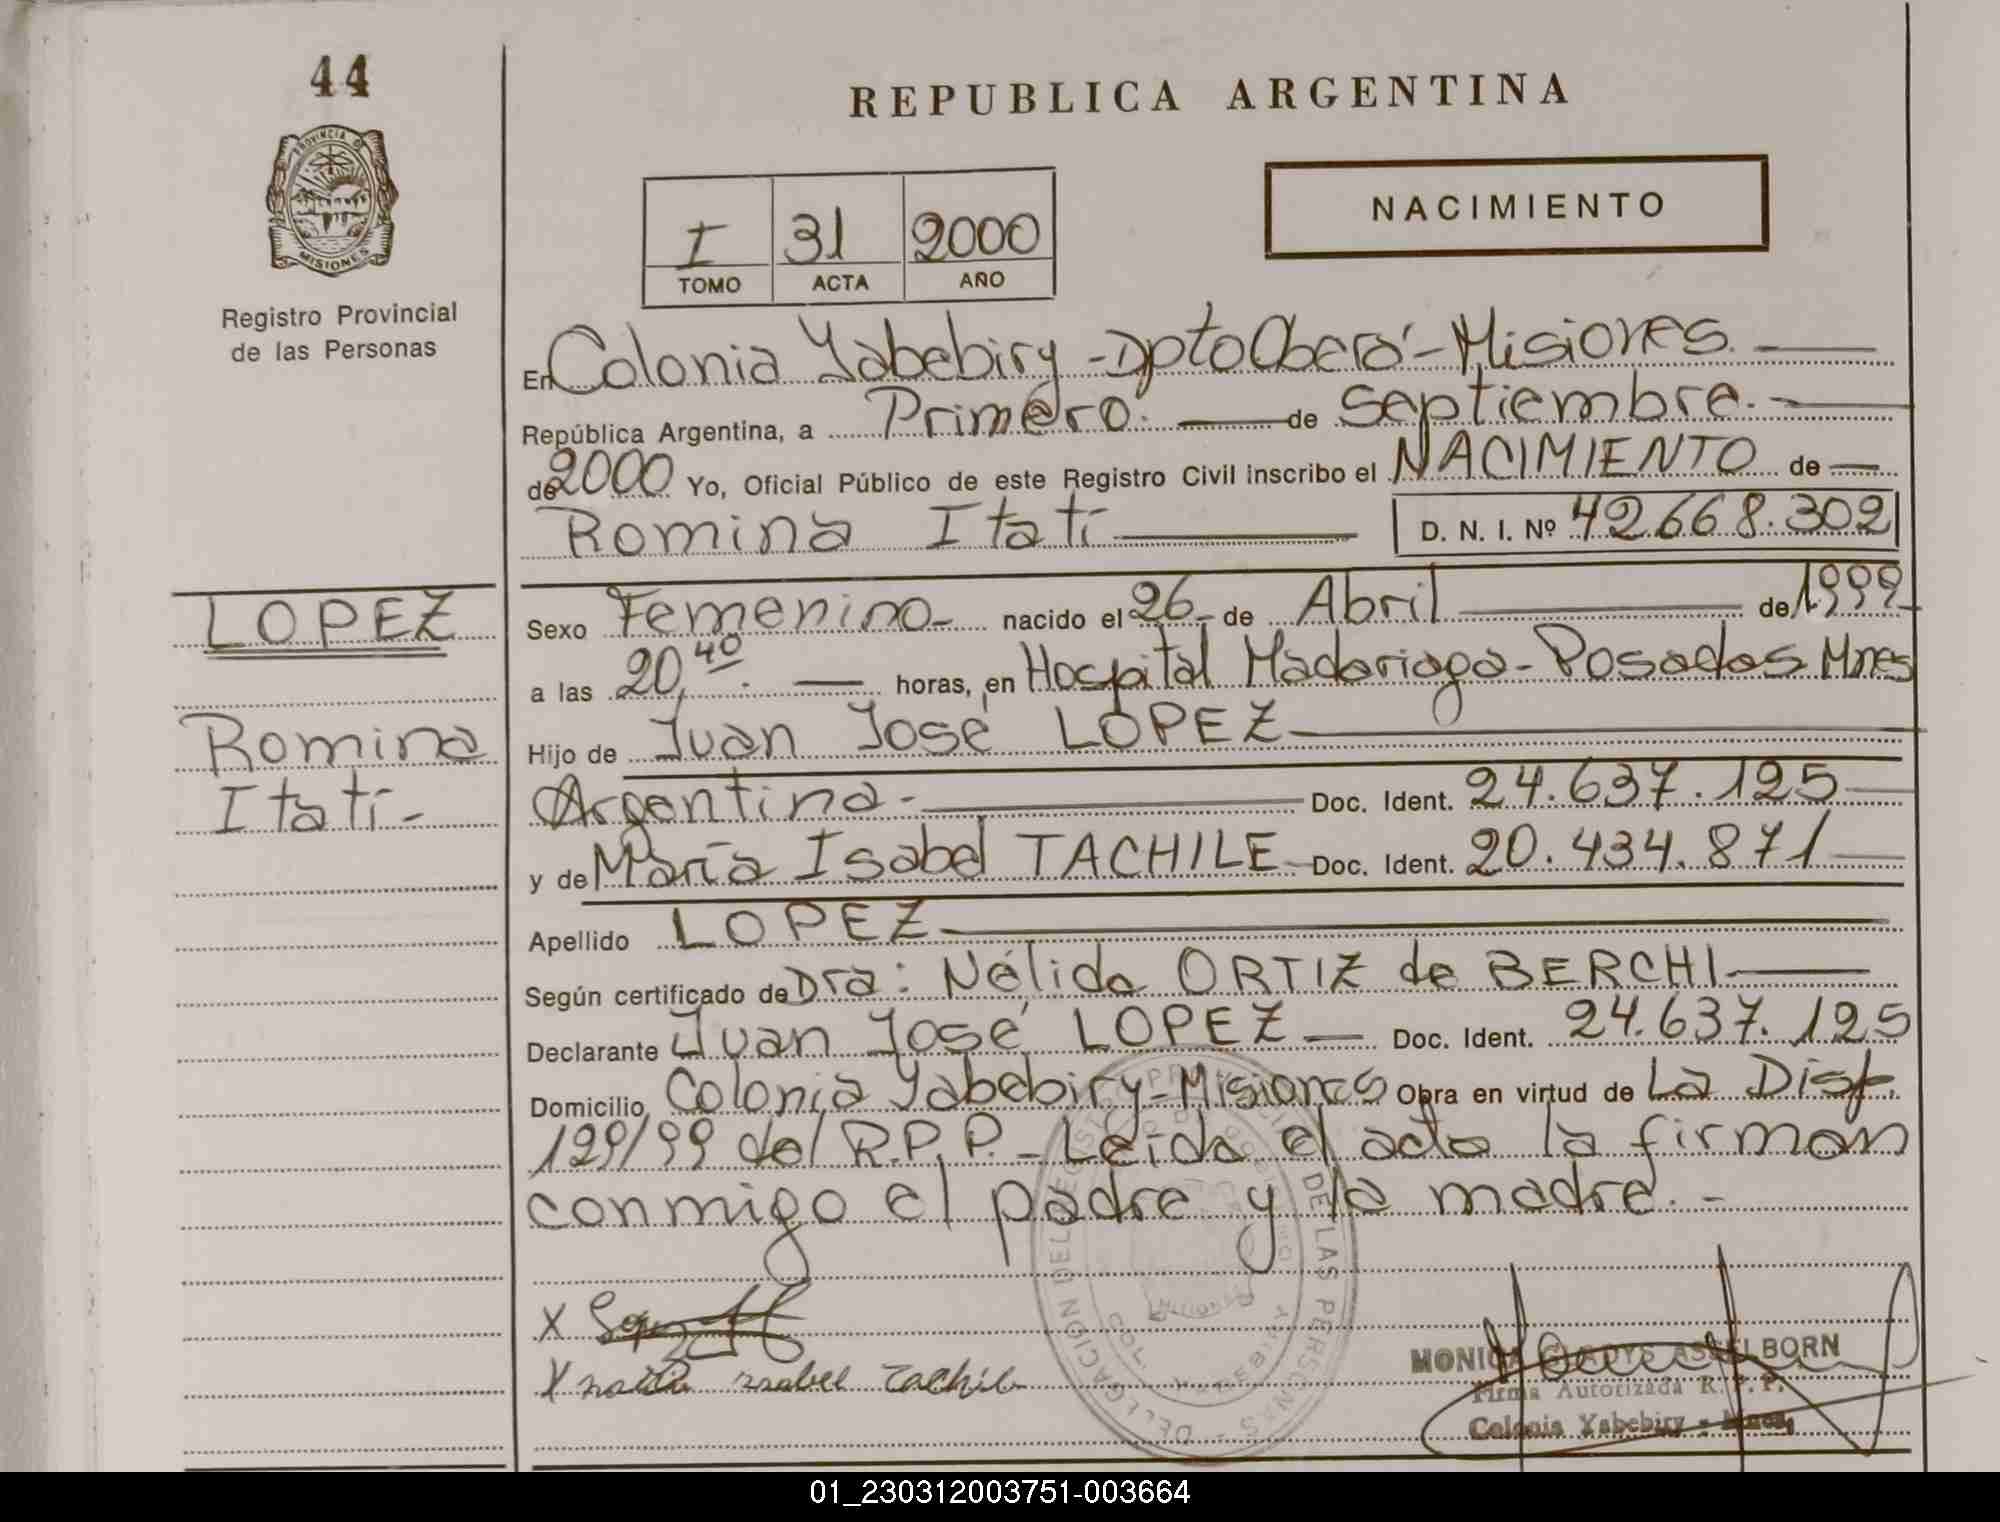 44
PROVINCIA DE
MISIONES
Registro Provincial
de las Personas
LOPEZ
Romina
Itatí-
REPUBLICA ARGENTINA
I 31 2000
TOMO ACTA AÑO
NACIMIENTO
En Colonia Yabebiry - Dpto Oberá - Misiones.
República Argentina, a Primero. de septiembre.-
de 2000 Yo, Oficial Público de este Registro Civil inscribo el NACIMIENTO de
Romina Itatí D. N. I. Nº 42.668.302
Sexo Femenino- nacido el 26- de Abril de 1999-
a las 20,40. horas, en Hospital Madariaga - Posadas Mnes
Hijo de Juan José LOPEZ
Argentina.- Doc. Ident. 24.637.125
y de María Isabel TACHILE Doc. Ident. 20.434.871
Apellido LOPEZ
Según certificado de Dra: Nélida ORTIZ de BERCHI
Declarante Juan José LOPEZ Doc. Ident. 24.637.125
Domicilio Colonia Yabebiry - Misiones Obra en virtud de La Disp.
129/99 del R.P.P.- Leida el acta la firman
conmigo el padre y la madre.-
DELEGACION DEL REGISTRO PROVINCIAL DE LAS PERSONAS
X
X Isabel Tachile
MONICA GLADYS ASSELBORN
Firma Autorizada R. P. P.
Colonia Yabebiry - Mnes.
01_230312003751-003664